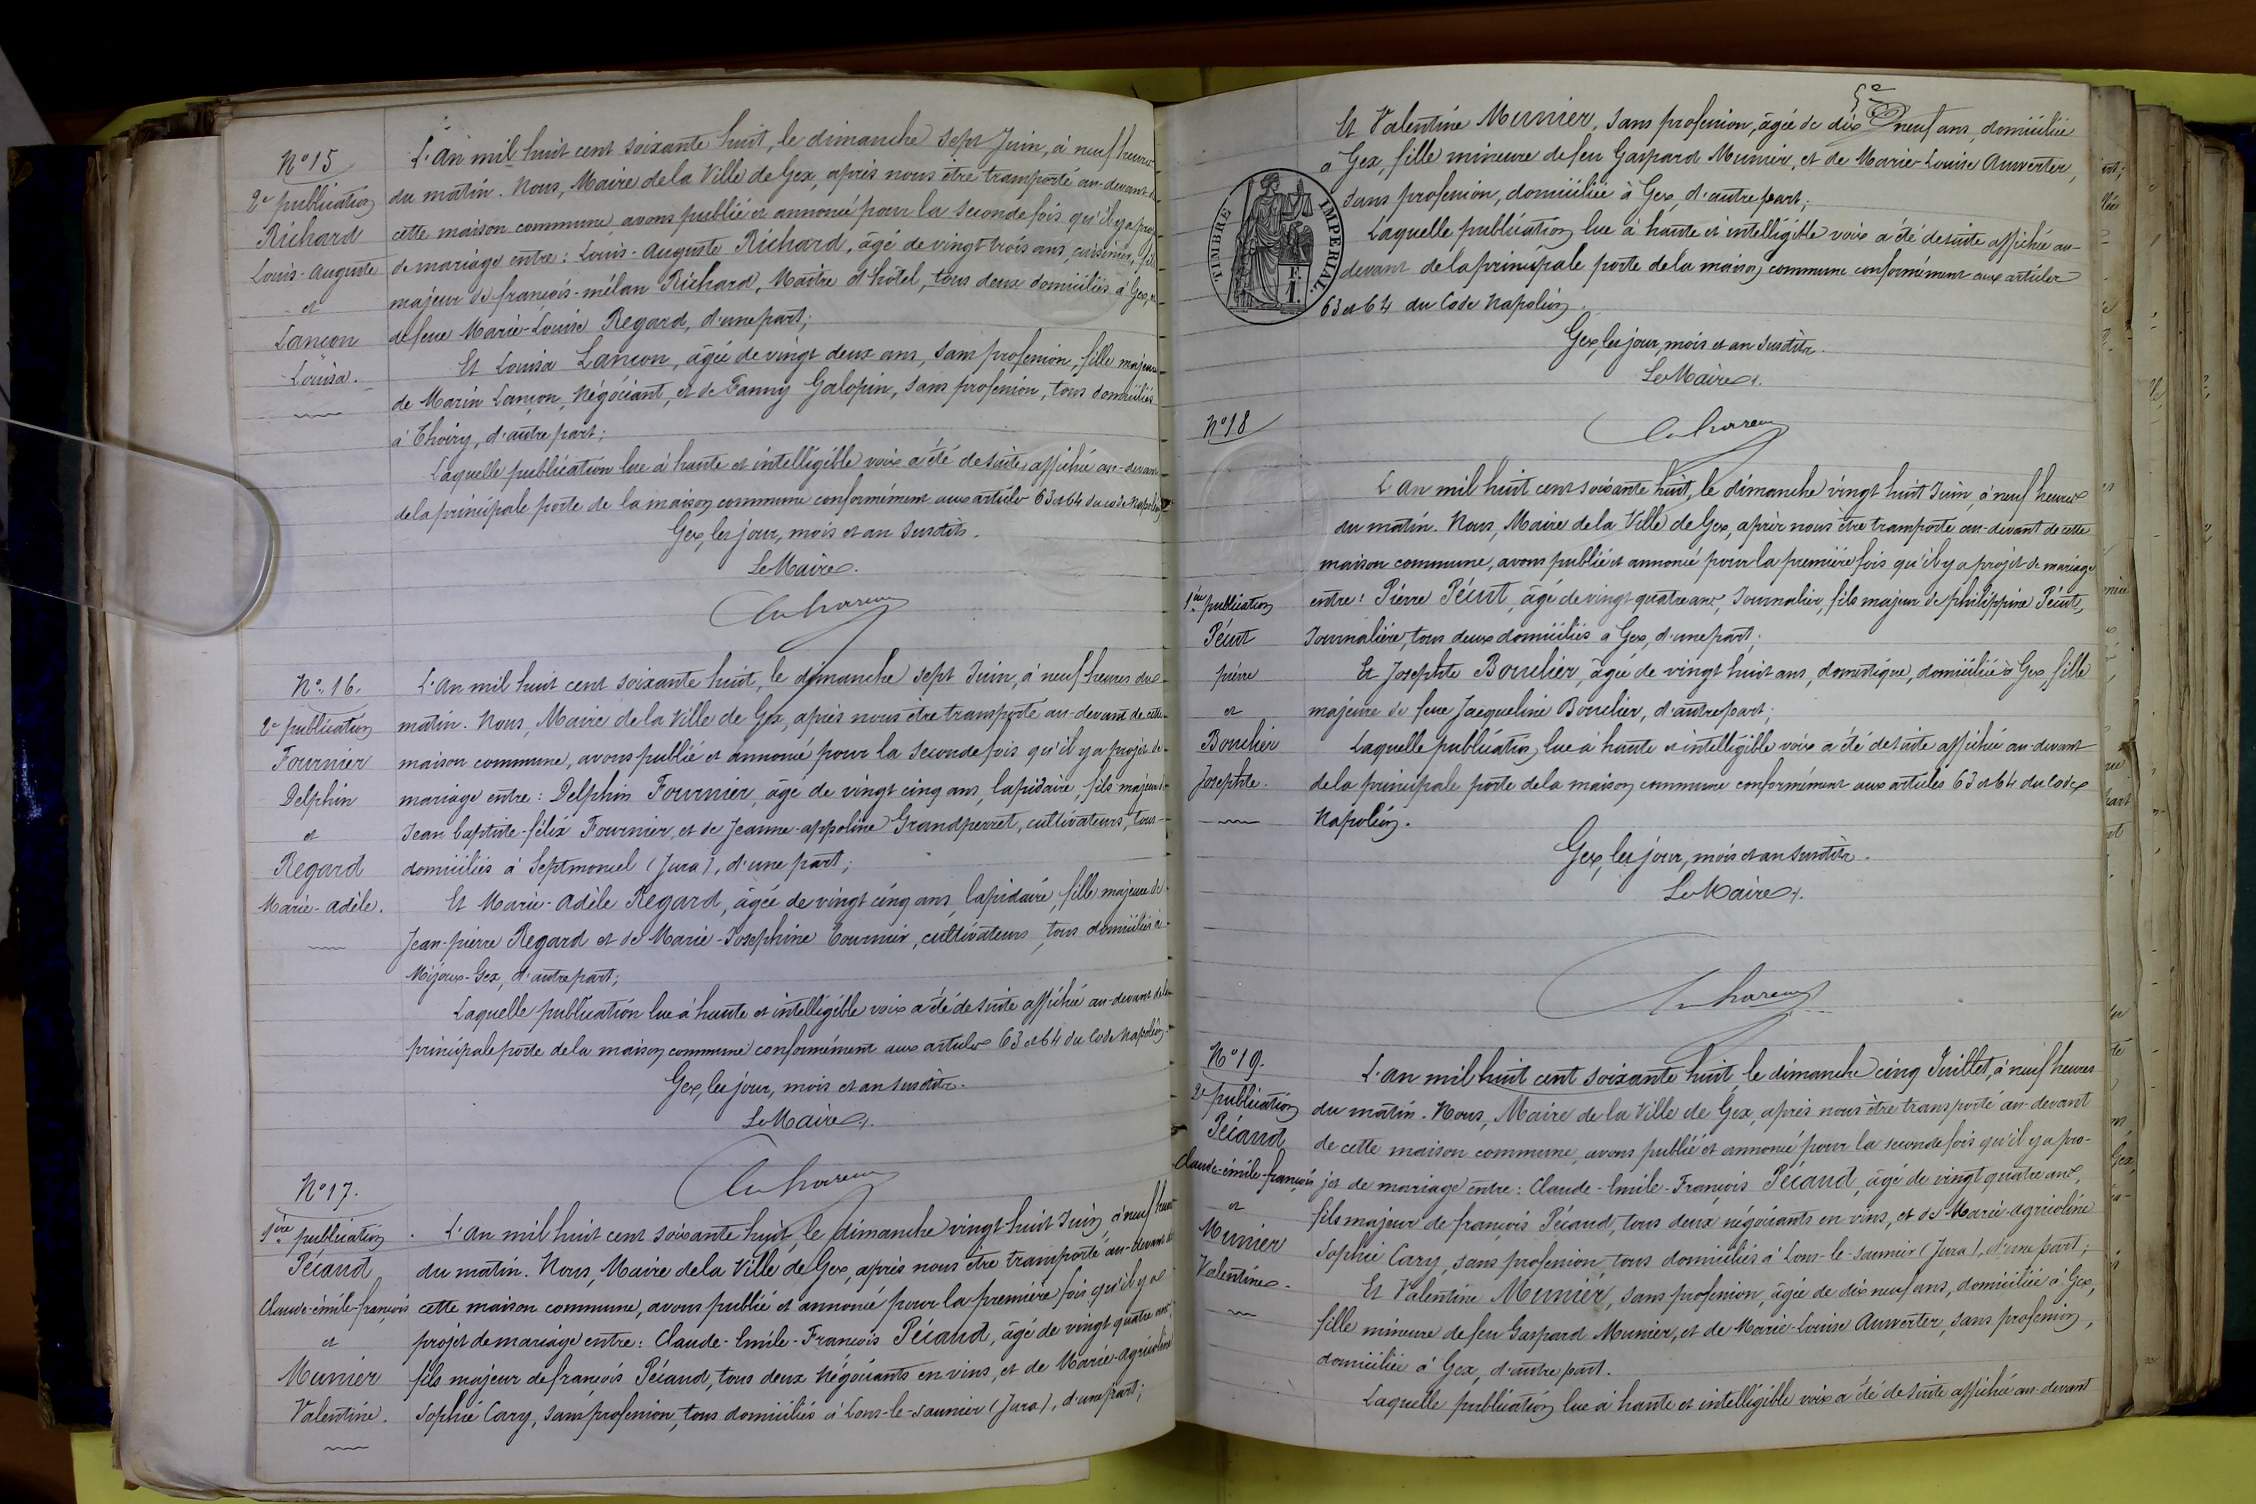 N° 15
2e publication
Richard
Louis-Auguste
et
Lançon
Louisa.
L'an mil huit cent soixante huit, le dimanche sept Juin, à neuf heures
du matin. Nous, Maire de la Ville de Gex, après nous être transporté au-devant de
cette maison commune, avons publié et annoncé pour la seconde fois qu'il y a projet
de mariage entre: Louis-Auguste Richard, âgé de vingt-trois ans, cuisinier, fils
majeur de françois-mélan Richard, Maître d'hôtel, tous deux domiciliés à Gex, et
de feue Marie-Louise Regard, d'une part;
Et Louisa Lançon, âgée de vingt deux ans, sans profession, fille majeure
de Marin Lançon, Négociant, et de Fanny Galopin, sans profession, tous domiciliés
à Thoiry, d'autre part;
Laquelle publication lue à haute et intelligible voix a été de suite affichée au-devant
de la principale porte de la maison commune conformément aux articles 63 et 64 du code Napoléon
Gex, les jour, mois et an susdits.
Le Maire.
N° 16.
2e publication
Fournier
Delphin
et
Regard
Marie-adèle.
L'an mil huit cent soixante huit, le dimanche sept Juin, à neuf heures du
matin. Nous, Maire de la Ville de Gex, après nous être transporté au-devant de cette
maison commune, avons publié et annoncé pour la seconde fois qu'il y a projet de
mariage entre: Delphin Fournier, âgé de vingt cinq ans, lapidaire, fils majeur de
Jean-baptiste-félix Fournier, et de Jeanne-appoline Grandperret, cultivateurs, tous
domiciliés à Septmoncel (Jura), d'une part;
Et Marie-Adèle Regard, âgée de vingt cinq ans, lapidaire, fille majeure de
Jean-pierre Regard et de Marie-Josephine Tournier, cultivateurs, tous domiciliés à
Mijoux-Gex, d'autre part;
Laquelle publication lue à haute et intelligible voix a été de suite affichée au-devant de la
principale porte de la maison commune conformément aux articles 63 et 64 du Code Napoléon
Gex, les jour, mois et an susdits.
Le Maire.
N° 17.
1ère publication
Pécaud
Claude-émile-françois
et
Munier
Valentine.
L'an mil huit cent soixante huit, le dimanche vingt-huit Juin, à neuf heures
du matin. Nous, Maire de la Ville de Gex, après nous être transporté au-devant de
cette maison commune, avons publié et annoncé pour la première fois qu'il y a
projet de mariage entre: Claude-Emile-François Pécaud, âgé de vingt quatre ans,
fils majeur de françois Pécaud, tous deux Négociants en vins, et de Marie-Agricoline
Sophie Cary, sans profession, tous domiciliés à Lons-le-saunier (Jura), d'une part;
Et Valentine Munier, sans profession, âgée de dix neuf ans, domiciliée
à Gex, fille mineure de feu Gaspard Munier, et de Marie-Louise Auverter,
sans profession, domiciliée à Gex, d'autre part;
Laquelle publication lue à haute et intelligible voix a été de suite affichée au-
devant de la principale porte de la maison commune conformément aux articles
63 et 64 du Code Napoléon.
TIMBRE IMPERIAL
Gex, les jour, mois et an susdits.
Le Maire.
N° 18
1ère publication
Pécut
pierre
et
Boucher
Josephte.
L'an mil huit cent soixante huit, le dimanche vingt huit Juin, à neuf heures
du matin. Nous, Maire de la Ville de Gex, après nous être transporté au-devant de cette
maison commune, avons publié et annoncé pour la première fois qu'il y a projet de mariage
entre: Pierre Pécut, âgé de vingt quatre ans, Journalier, fils majeur de philippine Pécut,
Journalière, tous deux domiciliés à Gex, d'une part;
Et Josephte Boucher, âgée de vingt huit ans, domestique, domiciliée à Gex, fille
majeure de feue Jacqueline Boucher, d'autre part;
Laquelle publication lue à haute et intelligible voix a été de suite affichée au-devant
de la principale porte de la maison commune conformément aux articles 63 et 64 du Code
Napoléon.
Gex, les jour, mois et an susdits.
Le Maire.
N° 19.
2e publication
Pécaud
Claude-émile-françois
et
Munier
Valentine.
L'an mil huit cent soixante huit, le dimanche cinq Juillet, à neuf heures
du matin. Nous, Maire de la Ville de Gex, après nous être transporté au-devant
de cette maison commune, avons publié et annoncé pour la seconde fois qu'il y a pro-
jet de mariage entre: Claude-Emile-François Pécaud, âgé de vingt quatre ans,
fils majeur de françois Pécaud, tous deux négociants en vins, et de Marie-agricoline
Sophie Cary, sans profession, tous domiciliés à Lons-le-saunier (Jura), d'une part;
Et Valentine Munier, sans profession, âgée de dix neuf ans, domiciliée à Gex,
fille mineure de feu Gaspard Munier, et de Marie-Louise Auverter, sans profession,
domiciliée à Gex, d'autre part.
Laquelle publication lue à haute et intelligible voix a été de suite affichée au-devant